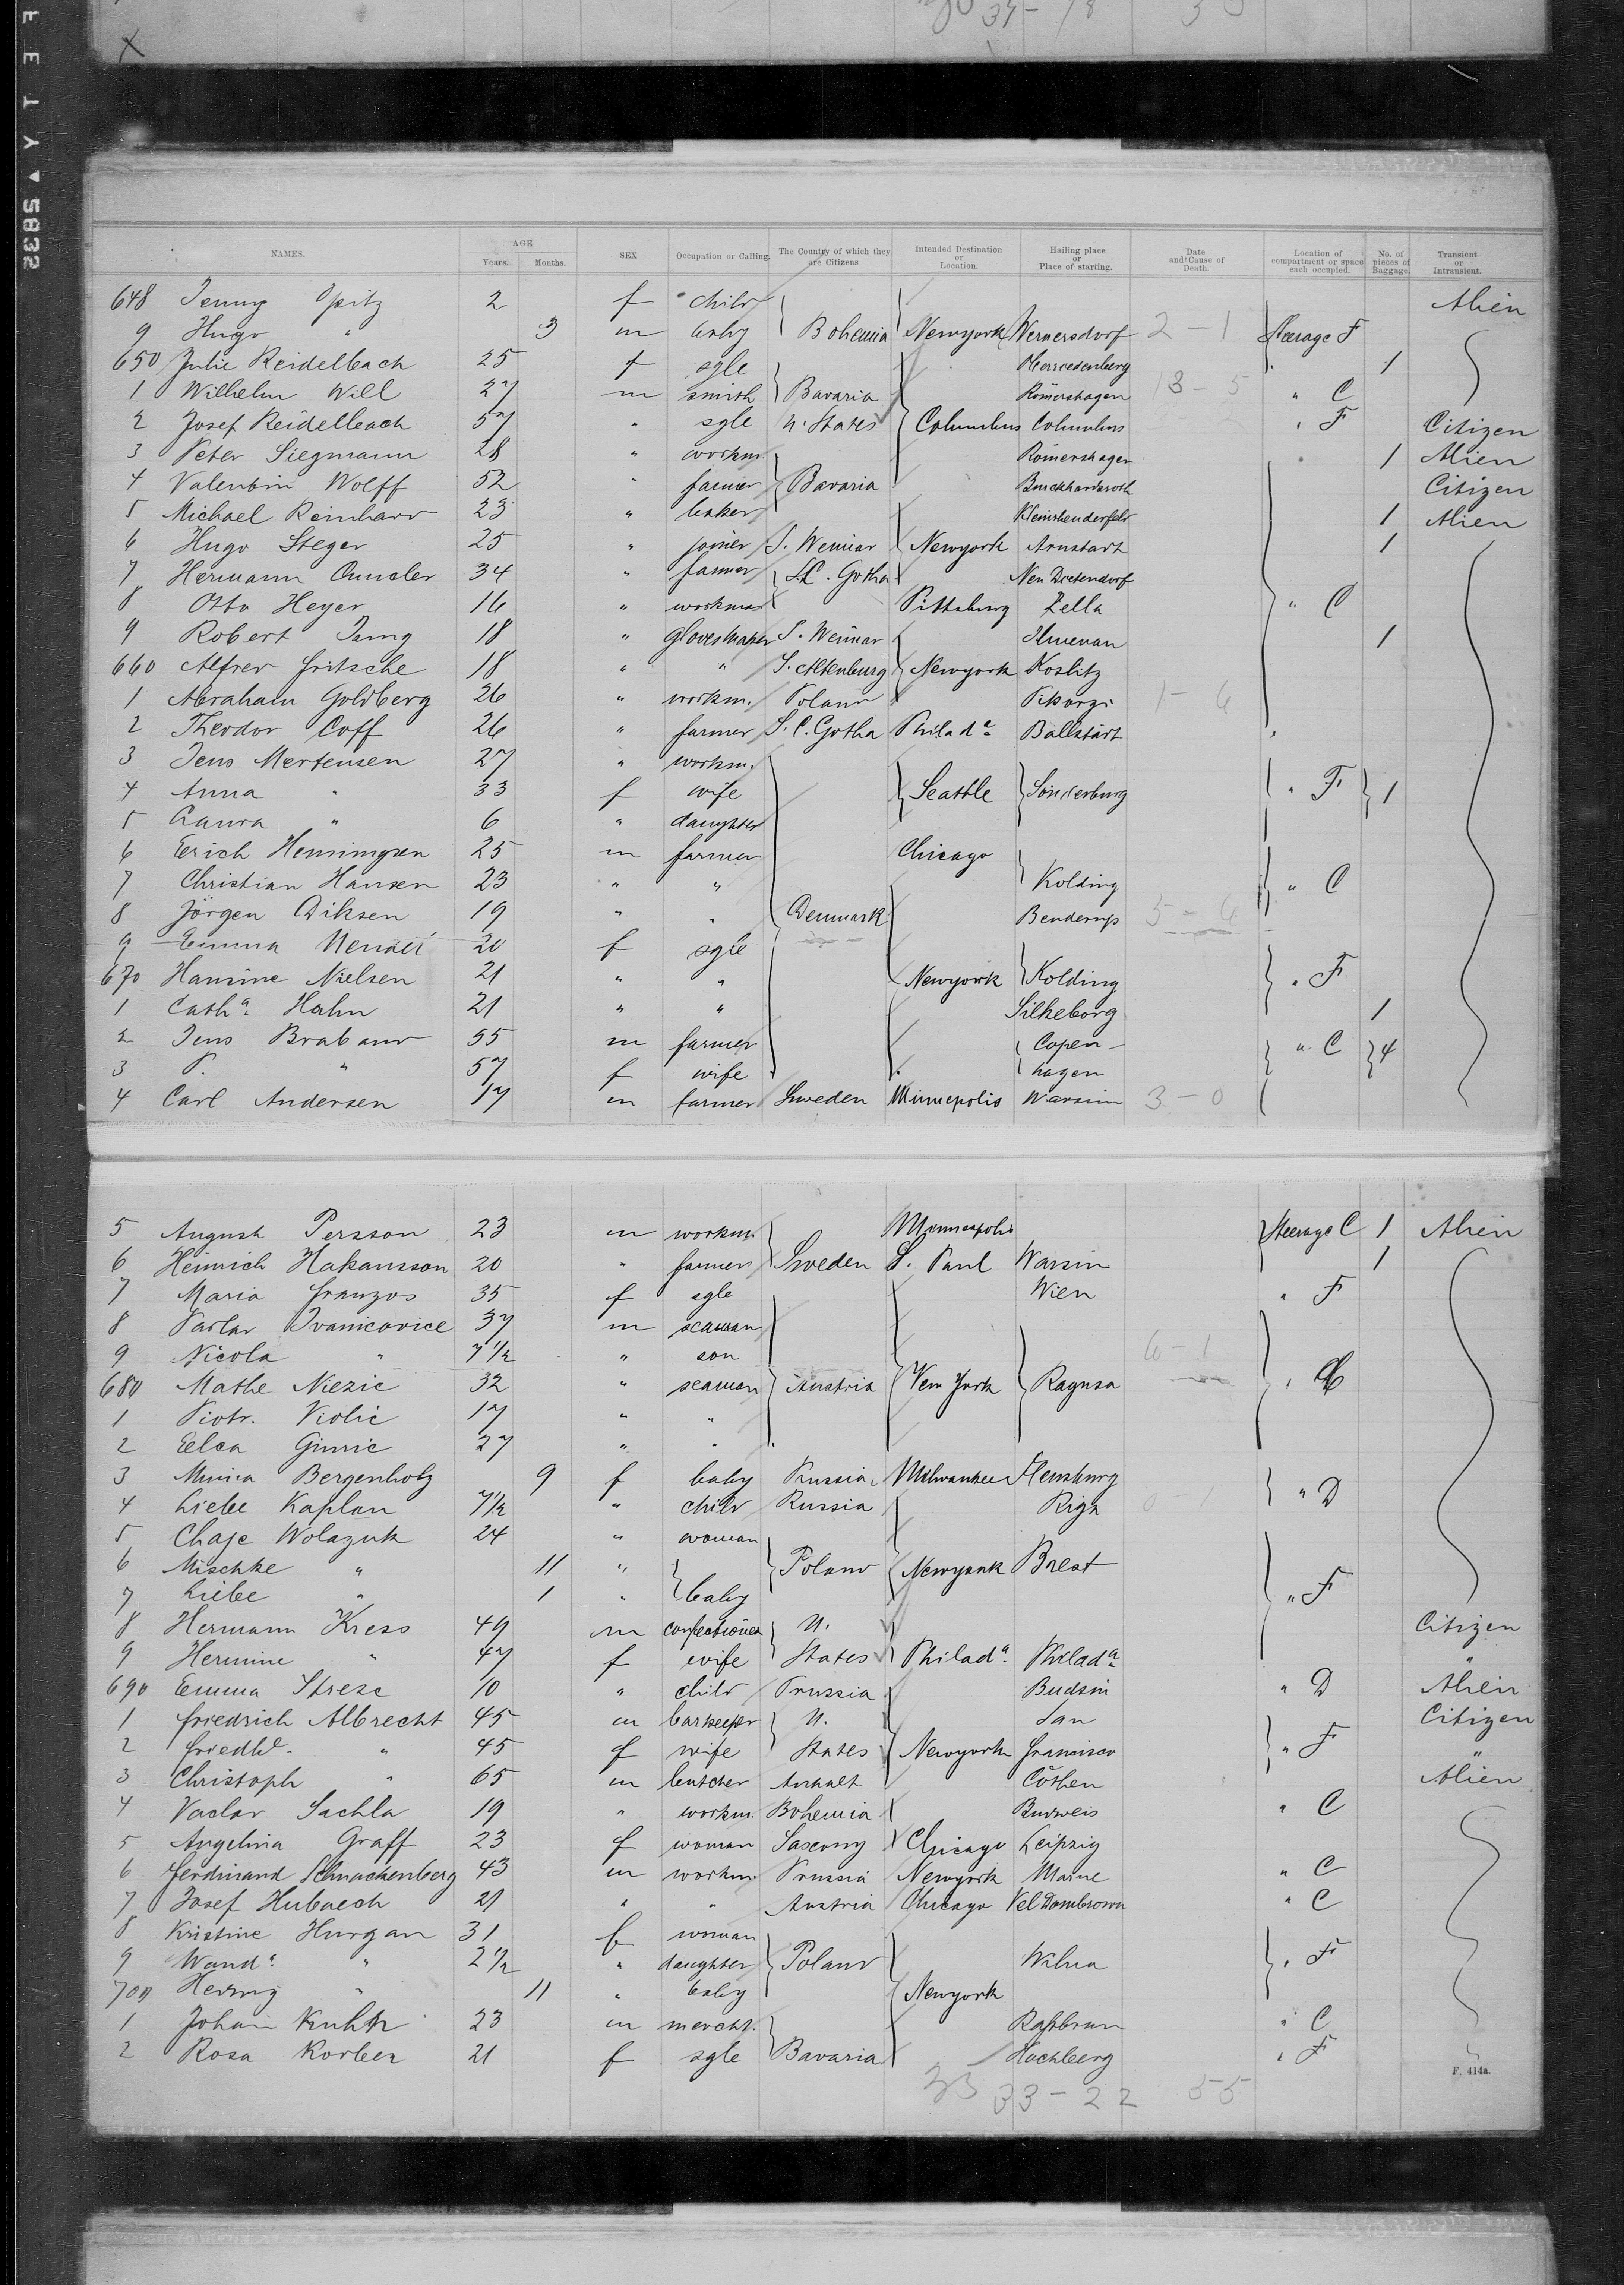 NAMES. AGE Years. Months. SEX Occupation or Calling. The Country of which they are Citizens Intended Destination or Location. Hailing place or Place of starting. Date and Cause of Death. Location of compartment or space each occupied. No. of pieces of Baggage. Transient or Intransient.
648 Jenny Opitz 2 f child Alien
9 Hugo " 3 m baby Bohemia Newyork Wernersdorf 2 - 1 Steerage F
650 Julie Reidelbach 25 f sgle 1
1 Wilhelm Will 27 m smith Bavaria Römershagen 13 - 5 " C
2 Josef Reidelbach 57 " sgle U. States Columbus Columbus " F Citizen
3 Peter Siegmann 28 " workm. Römershagen 1 Alien
4 Valentin Wolff 52 " farmer Bavaria Burckhardsroth Citizen
5 Michael Reinhard 23 " baker 1 Alien
6 Hugo Steger 25 " joiner S. Weimar Newyork Arnstadt 1
7 Hermann 34 " farmer S.C. Gotha Neu Dietendorf
8 Otto Heyer 16 " workman Pittsburg Zella " C
9 Robert Jung 18 " glovesmaker S. Weimar Ilmenau 1
660 Alfred Fritsche 18 " " S. Altenburg Newyork Koslitz
1 Abraham Goldberg 26 " workm. Poland 1 - 6
2 Theodor Coff 26 " farmer S.C. Gotha Philada Ballstädt "
3 Jens Mortensen 27 " workm.
4 Anna " 33 f wife Seattle Sonderburg " F 1
5 Laura " 6 " daughter
6 Erich Henningsen 25 m farmer Chicago
7 Christian Hansen 23 " " Kolding " C
8 Jörgen Diksen 19 " " Denmark Benderup 5 - 4
9 Emma 20 f sgle
670 Hansine Nielsen 21 " " Newyork Kolding " F
1 Catha Hahn 21 " " Silkeborg 1
2 Jens Braband 55 m farmer Copen- " C 4
3 P. " 57 f wife hagen
4 Carl Andersen 17 m farmer Sweden Minnepolis Warsim 3 - 0
5 August Persson 23 m workm. Minneapolis Steerage C 1 Alien
6 Heinrich Hakansson 20 " farmer Sweden S. Paul Warsin 1
7 Maria Franzos 35 f sgle Wien " F
8 Ivanicovice 37 m seaman
9 Nicola " 7 1/2 " son 6 - 1
680 Mathe Niezic 32 " seaman Austria New York Ragusa " C
1 Piotr. Violic 17 " "
2 Eelca Gimic 27 " "
3 Minna Bergenholz 9 f baby Russia Milwaukee Flensburg
4 Liebe Kaplan 7 1/2 " child Russia Riga " D
5 Chaje Wolazuk 24 " woman
6 Mischke " 11 " Poland Newyork Brest
7 Liebe " 1 " baby " F
8 Hermann Kress 49 m confectioner U. Citizen
9 Hermine " 47 f wife States Philada. Philada "
690 Emma Strese 10 " child Prussia Budsin " D Alien
1 Friedrich Albrecht 45 m barkeeper U. San Citizen
2 Friedhe. " 45 f wife States Newyork Francisco " F "
3 Christoph " 65 m butcher Anhalt Cöthen Alien
4 Vaclav Sachla 19 " workm. Bohemia Budweis " C
5 Angelina Graff 23 f woman Saxony Chicago Leipzig
6 Ferdinand Schnackenberg 43 m workm. Prussia Newyork Marne " C
7 Josef Hubaech 21 " " Austria Chicago Vel Dombrowa " C
8 Kristine Hurgan 31 f woman
9 Wanda " 2 1/2 " daughter Poland Wilna " F
700 Hedwig " 11 " baby Newyork
1 Johan Kuhh 23 m mercht. " C
2 Rosa Korber 21 f sgle Bavaria Hochberg " F
33 33 - 22 55
F. 414a.